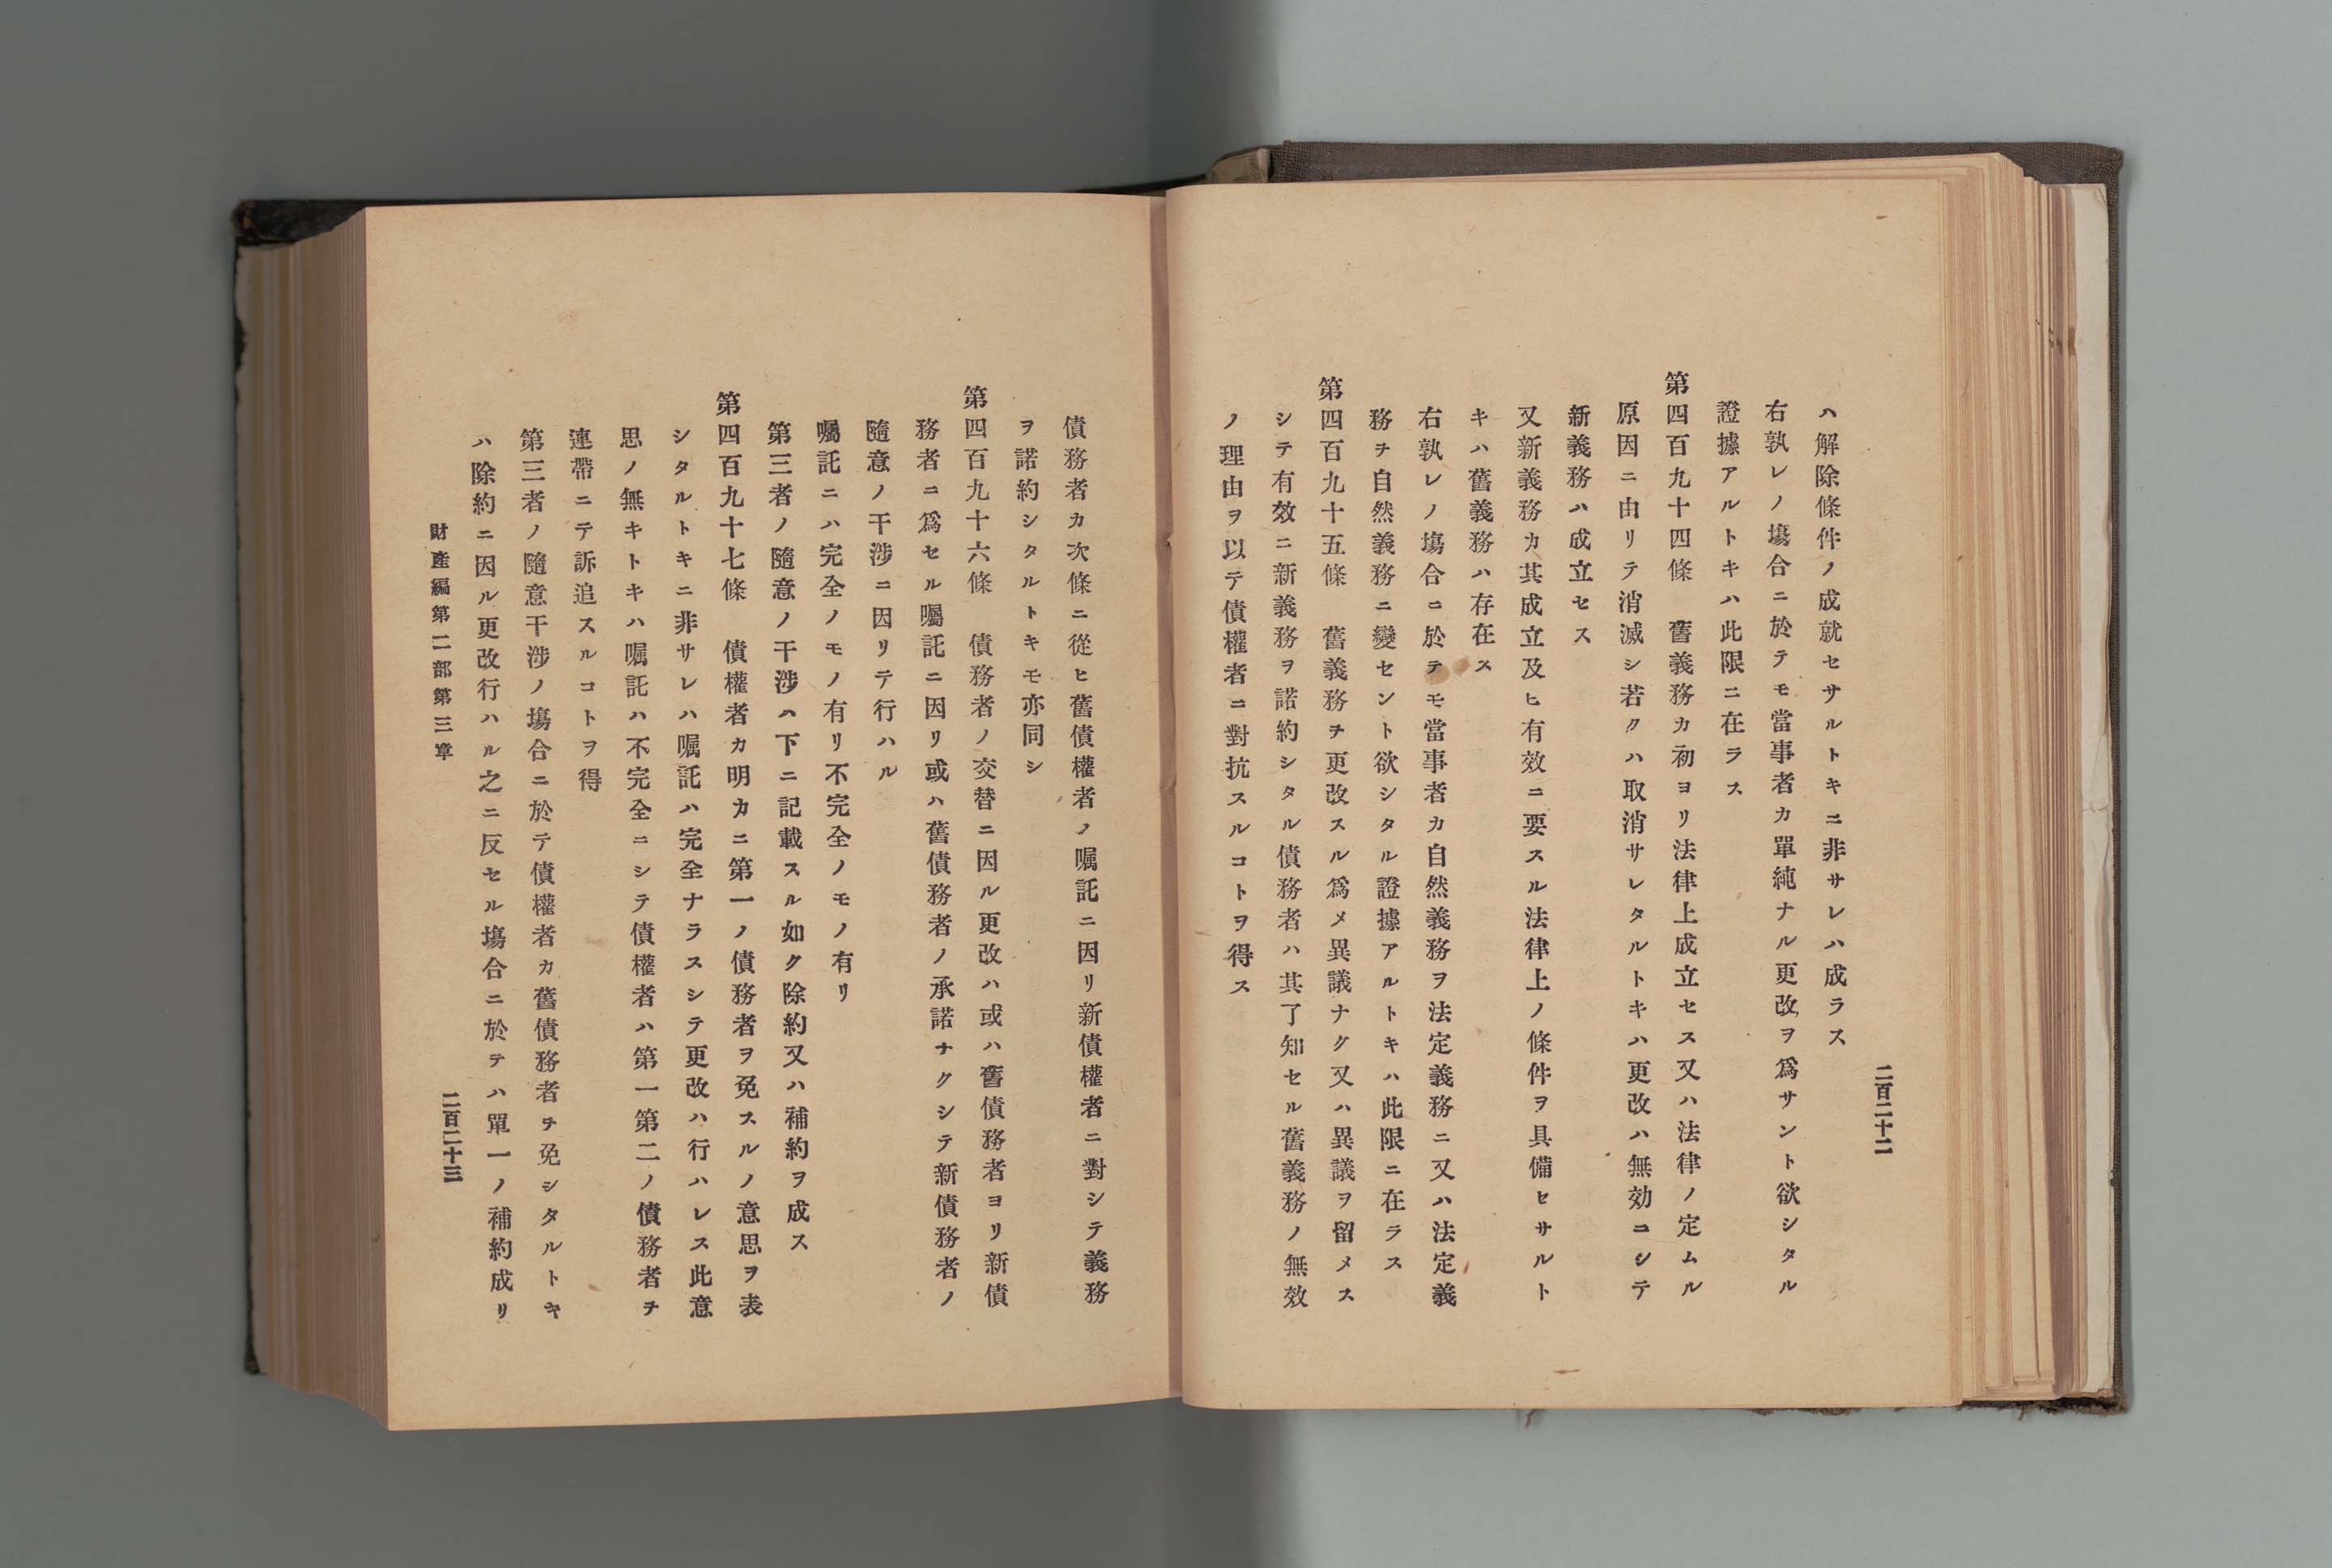 ハ解除條件ノ成就セサルトキニ非サレハ成ラス
右孰レノ塲合ニ於テモ當事者カ單純ナル更改ヲ爲サント欲シタル
證據アルトキハ此限ニ在ラス
第四百九十四條　舊義務カ初ヨリ法律上成立セス又ハ法律ノ定ムル
原因ニ由リテ消滅シ若クハ取消サレタルトキハ更改ハ無効ニシテ
新義務ハ成立セス
又新義務カ其成立及ヒ有效ニ要スル法律上ノ條件ヲ具備セサルト
キハ舊義務ハ存在ス
右孰レノ塲合ニ於テモ當事者カ自然義務ヲ法定義務ニ又ハ法定義
務ヲ自然義務ニ變セント欲シタル證據アルトキハ此限ニ在ラス
第四百九十五條　舊義務ヲ更改スル爲メ異議ナク又ハ異議ヲ留メス
シテ有效ニ新義務ヲ諾約シタル債務者ハ其了知セル舊義務ノ無效
ノ理由ヲ以テ債權者ニ對抗スルコトヲ得ス
二百二十二
債務者カ次條ニ從ヒ舊債權者ノ嘱託ニ因リ新債權者ニ對シテ義務
ヲ諾約シタルトキモ亦同シ
第四百九十六條　債務者ノ交替ニ因ル更改ハ或ハ舊債務者ヨリ新債
務者ニ爲セル囑託ニ因リ或ハ舊債務者ノ承諾ナクシテ新債務者ノ
隨意ノ干渉ニ因リテ行ハル
囑託ニハ完全ノモノ有リ不完全ノモノ有リ
第三者ノ隨意ノ干渉ハ下ニ記載スル如ク除約又ハ補約ヲ成ス
第四百九十七條　債權者カ明カニ第一ノ債務者ヲ免スルノ意思ヲ表
シタルトキニ非サレハ嘱託ハ完全ナラスシテ更改ハ行ハレス此意
思ノ無キトキハ嘱託ハ不完全ニシテ債權者ハ第一第二ノ債務者ヲ
連帶ニテ訴追スルコトヲ得
第三者ノ隨意干渉ノ塲合ニ於テ債權者カ舊債務者ヲ免シタルトキ
ハ除約ニ因ル更改行ハル之ニ反セル塲合ニ於テハ單一ノ補約成リ
財產編第二部第三章
二百二十三